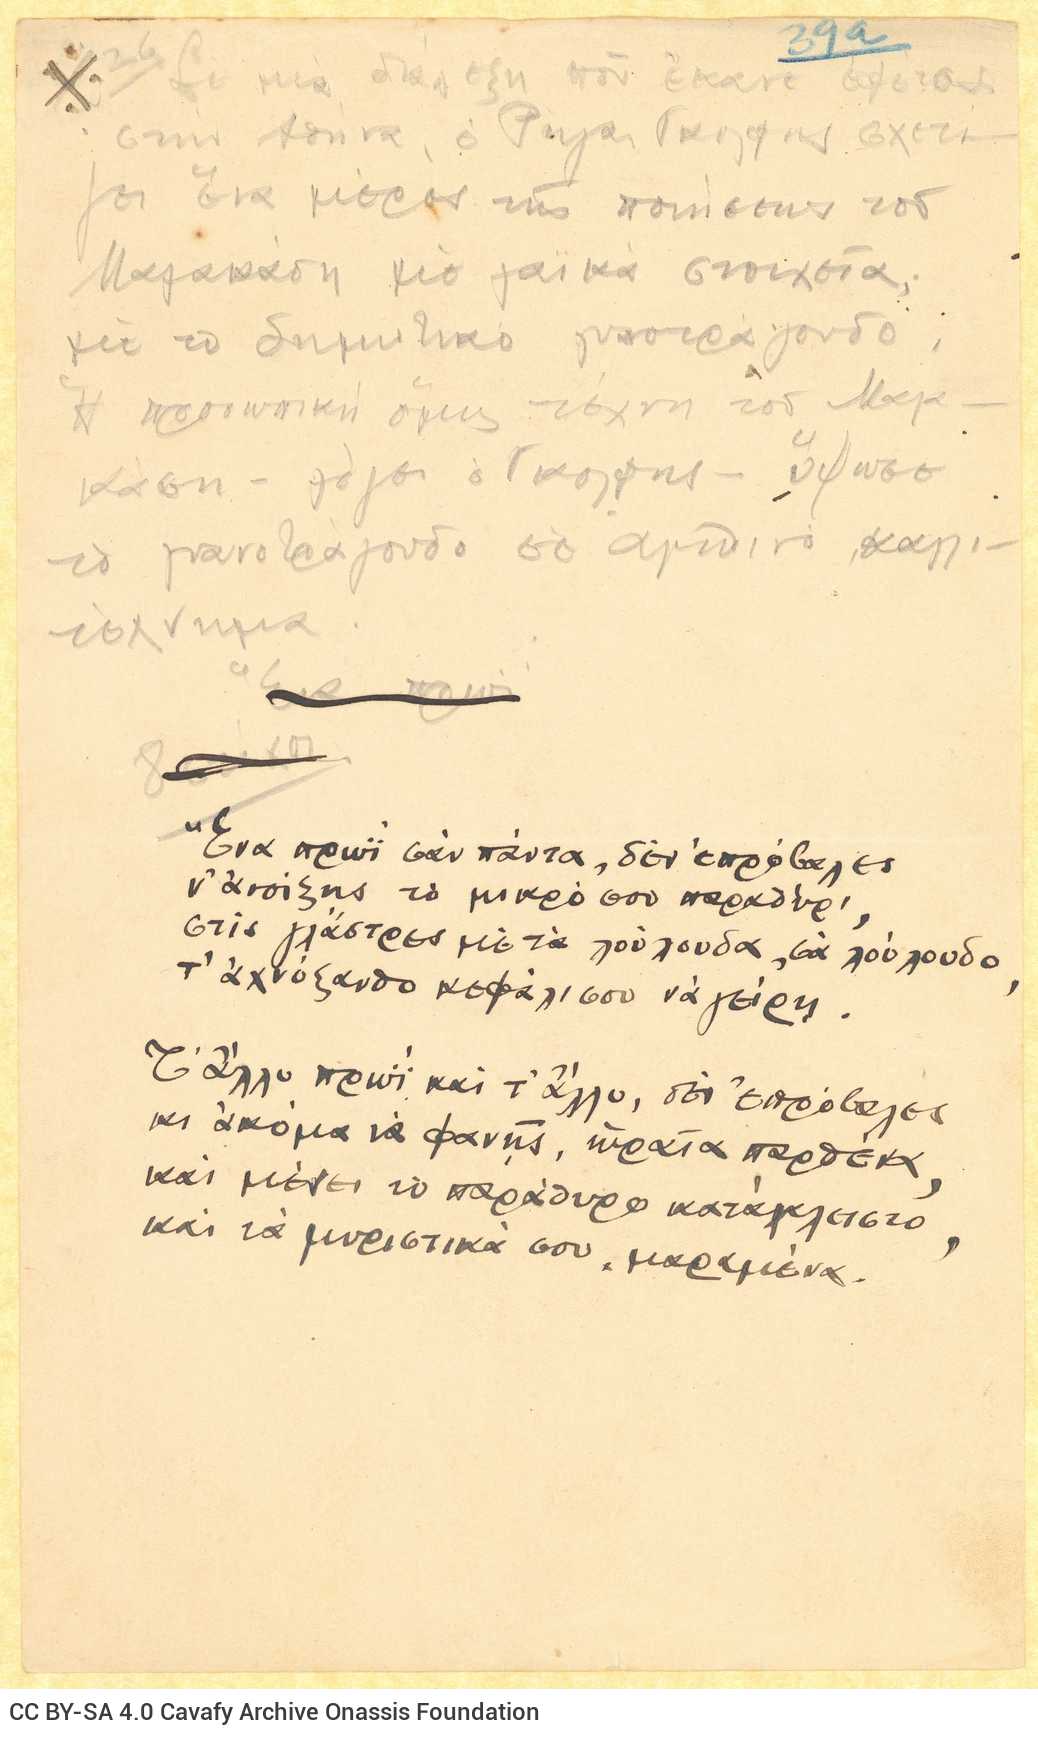 39α
26 Σὲ μιὰ διάλεξη ποῦ ἔκανε ἐφέτος
στὴν Ἀθήνα, ὁ Ρήγας Γκόλφης σχετί-
ζει ἕνα μέρος τῆς ποιήσεως τοῦ
Μαλακάση μὲ λαϊκὰ στοιχεῖα,
μὲ τὸ δημοτικὸ λιανοτράγουδο.
Ἡ προσωπικὴ ὅμως τέχνη τοῦ Μαλα-
κάση - λέγει ὁ Γκόλφης - ὕψωσε
τὸ λιανοτράγουδο σὲ ἀληθινὸ καλλι-
τέχνημα.
Ἕνα πρωῒ
8 στίχοι
Ἕνα πρωῒ σὰν πάντα, δὲν ἐπρόβαλες
ν' ἀνοίξῃς τὸ μικρό σου παραθύρι,
στὶς γλάστρες μὲ τὰ λούλουδα, σὰ λούλουδο,
τ' ἀχνόξανθο κεφάλι σου νὰ γείρῃ.
Τ' ἄλλο πρωῒ καὶ τ' ἄλλο, δὲν ἐπρόβαλες
κι ἀκόμα νὰ φανῇς, ὡραῖα παρθένα,
καὶ μένει τὸ παράθυρο κατάκλειστο,
καὶ τὰ μυριστικά σου, μαραμένα.
CC BY-SA 4.0 Cavafy Archive Onassis Foundation